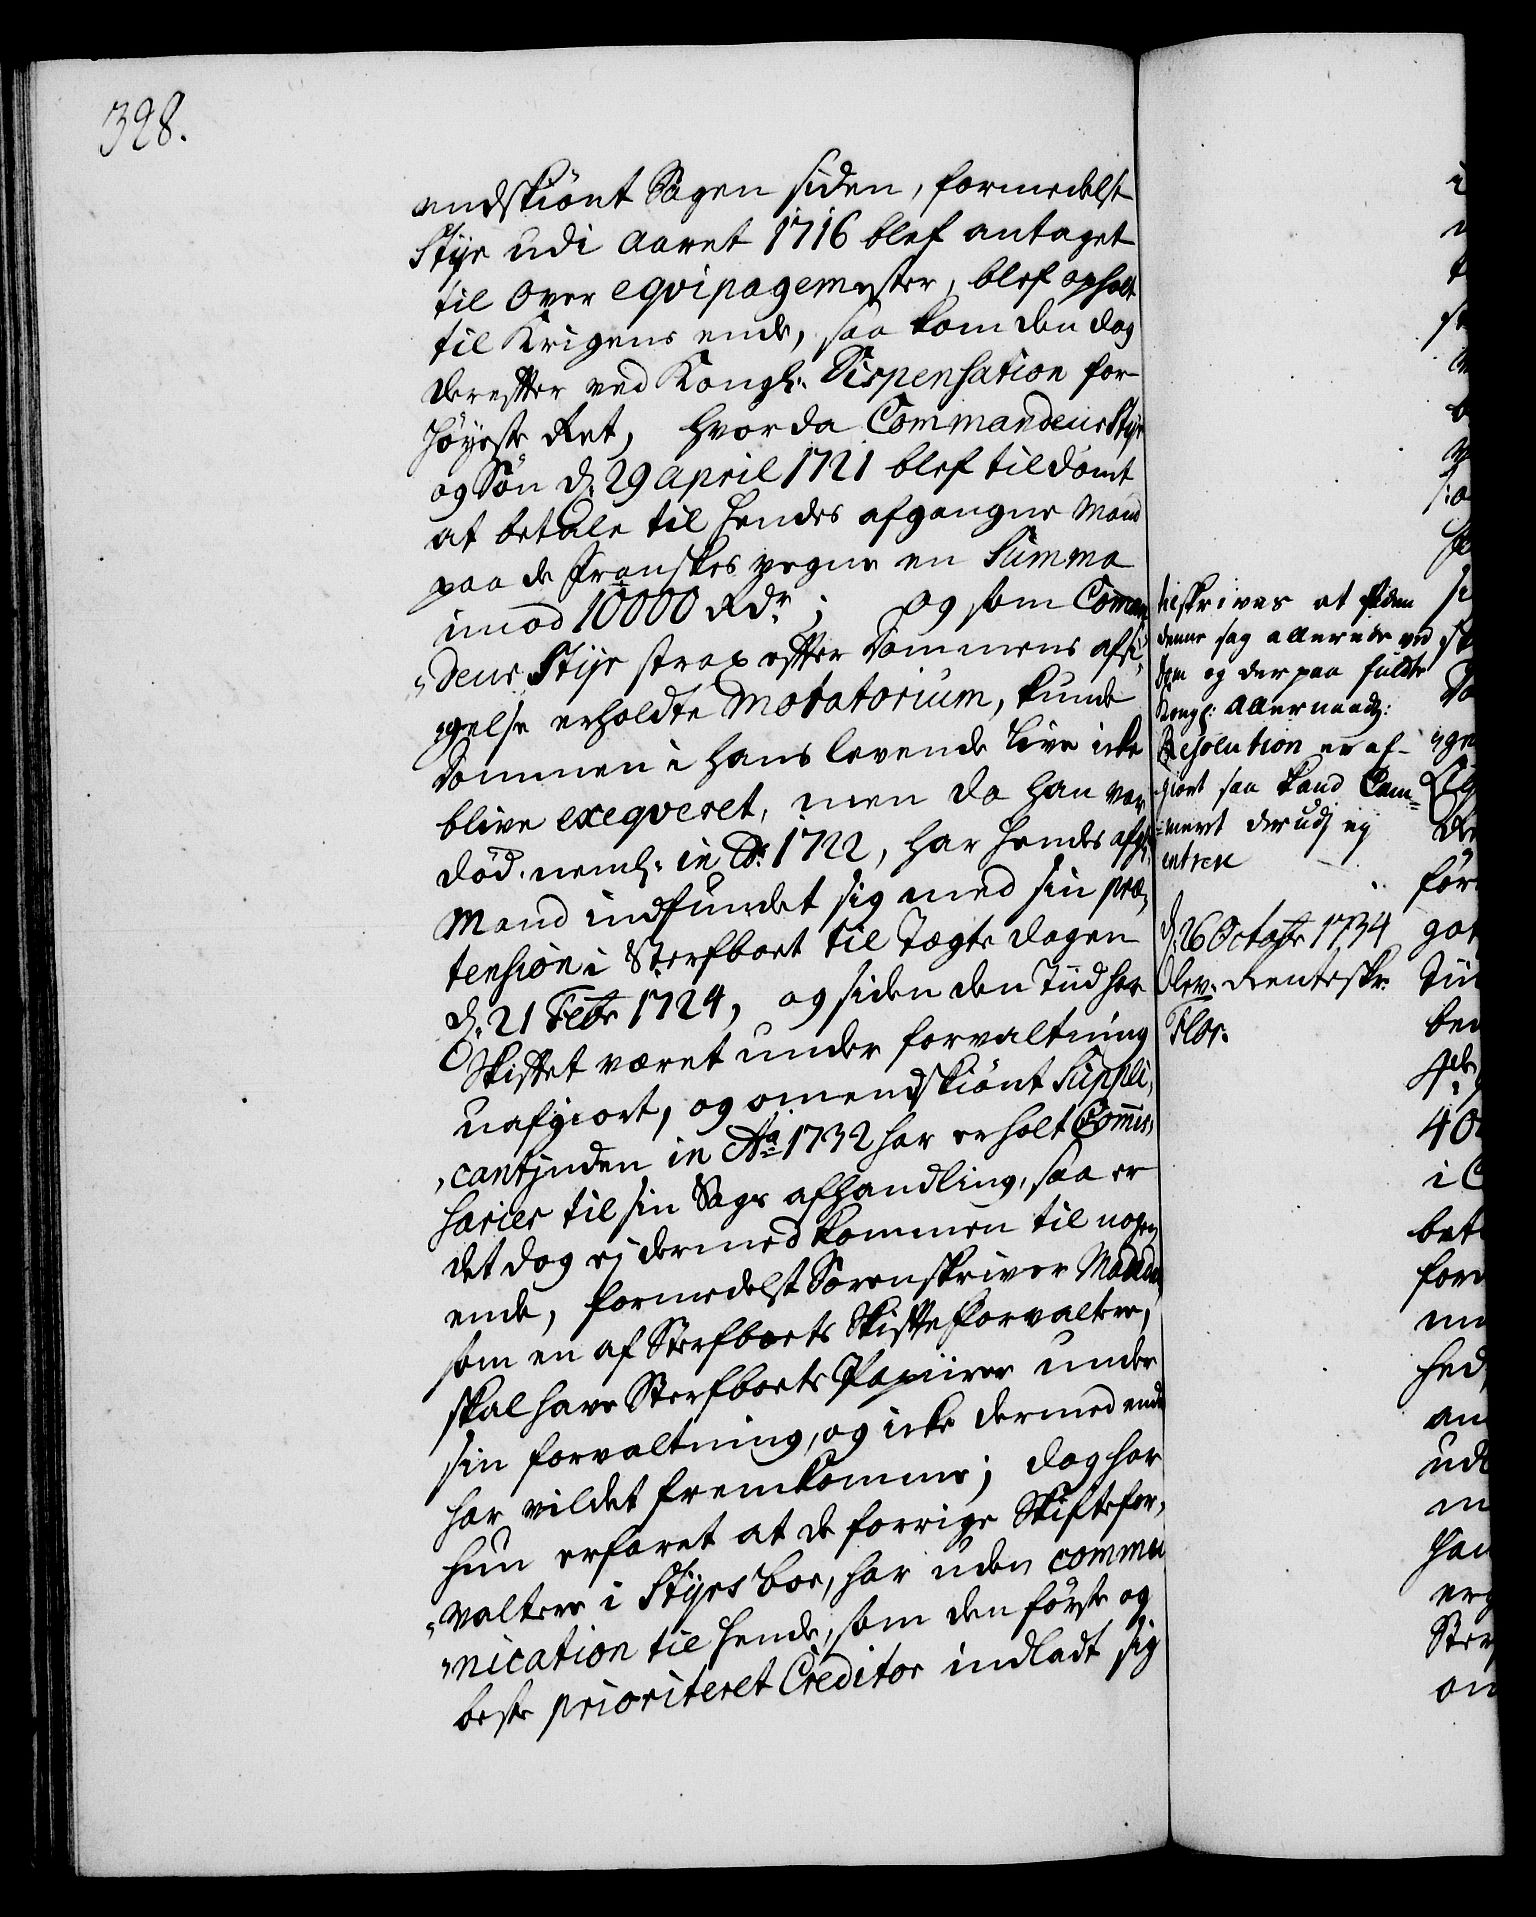 328.
endskiönt Sagen siden, formedelst
Stije udi Aaret 1716 blef antaget
til Over eqvipagemester, blef opholt
til Krigens ende, saa kom den dog
derefter ved Kongl: Dispensation for
Höyeste Ret, hvor da Commandeur Stije
og Sön d. 29 april 1721 blef tildömt
at betale til hendes afgangne Mand
paa de Franskes vegne en Summa
imod 10000 Rdr; og som Comman
deur Stije strax efter Dommens afsi,
gelse erholdte Motatorium, kunde
Dommen i hans levende live icke
blive exeqveret, men da han var
död. neml: in Ao 1722, har hendes afg:
Mand indfundet sig med sin præ,
tension i Sterfboet til Tægte dagen
d. 21 Febr 1724, og siden den Tiid har
Skiftet været under forvaltning
uafgiort, og omendskiönt Suppli,
cantinden in Ao 1732 har erholt Commis,
sarier til sin Sags afhandling, saa er
det dog ej dermed kommen til nogen
ende, formedelst Sorenskriver
som en af Sterfboets Skifteforvaltere,
skal have Sterfboets Papiirer under
sin forvaltning, og icke dermed endnu
har vildet fremkomme; dog har
hun erfaret at de forrige Skiftefor,
valtere i Stijes boe, har uden commu
nication til hende, som den förste og
beste prioriteret Creditor indladt sig
tilskrives at siden
denne sag allerede ved
dom og derpaa fuldte
Kongl: Allernaadg:
Resolution er af-
giort saa kand Cam=
meret derudj ej
entrere
d. 26 Octobr 1734
Olev. Renteskr.
Flor.